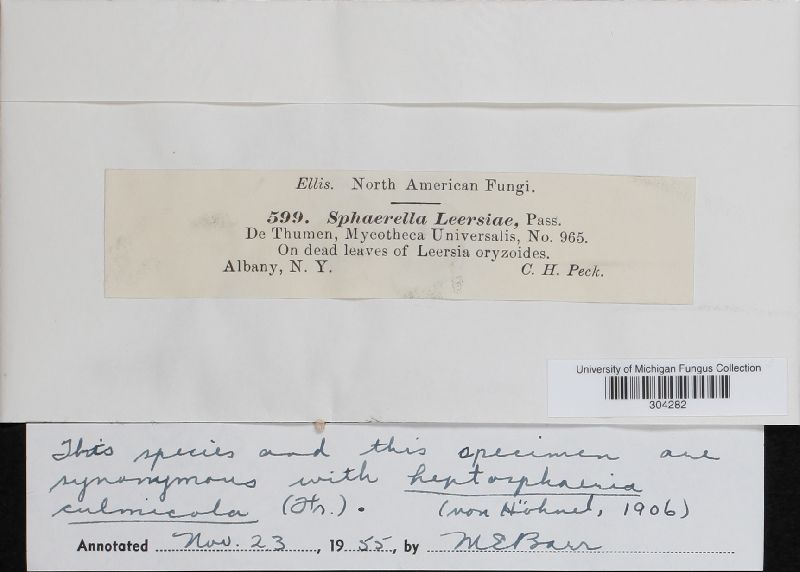 Ellis. North American Fungi.
599. Sphaerella Leersiae, Pass.
De Thumen, Mycotheca Universalis, No. 965.
On dead leaves of Leersia oryzoides.
Albany, N. Y. C. H. Peck.
University of Michigan Fungus Collection
304282
This species and this specimen are
synonymous with Leptosphaeria
culmicola (Fr.). (von Höhnel, 1906)
Annotated Nov. 23, 1955, by M E Barr